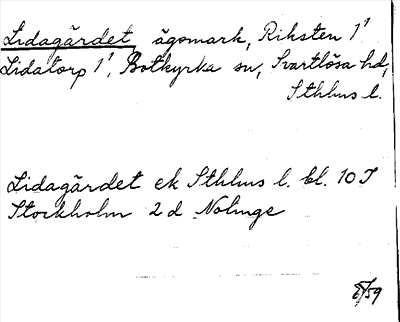 Lidagärdet, ägomark, Riksten 1¹
Lidatorp 1¹, Botkyrka sn, Svartlösa hd,
Sthlms l.
Lidagärdet ek Sthlms l. bl. 10 I
Stockholm 2 d Nolinge
/59